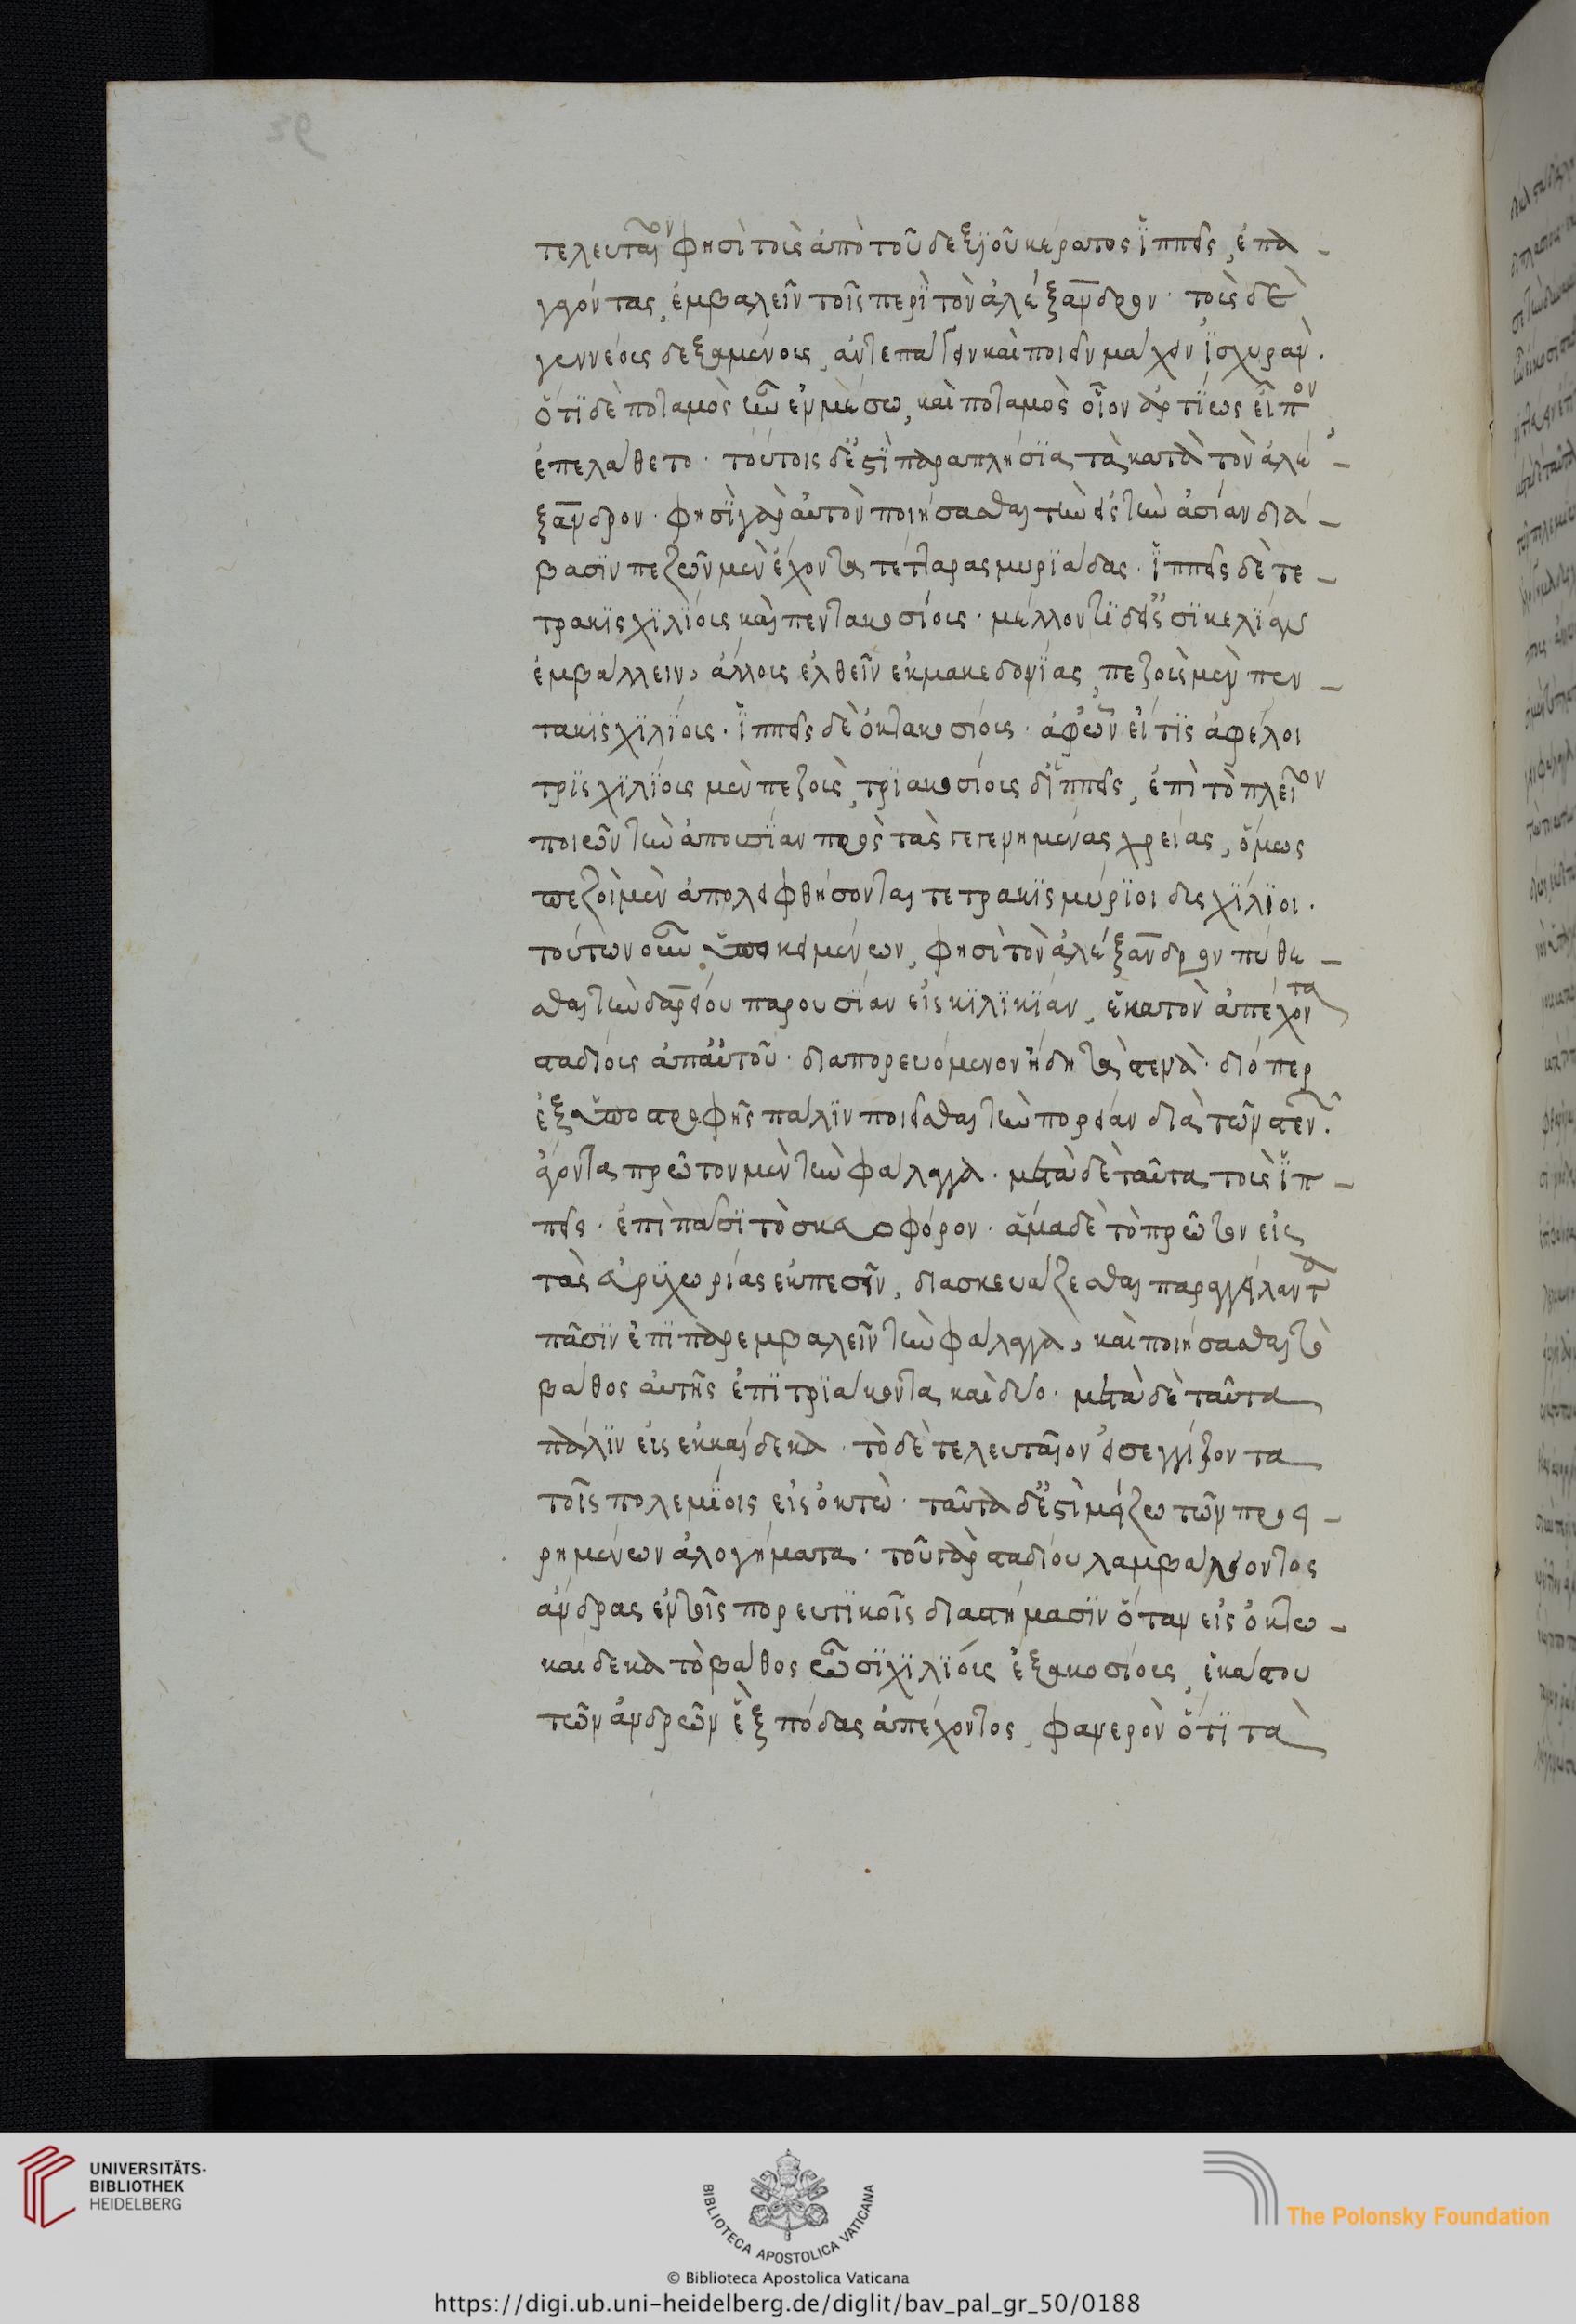 τελευταῖον φησὶ τοὺς ἀπὸ τοῦ δεξϊοῦ κέρατος ἵππεις, ἐπα-
γαγόντας, ἐμβαλεῖν τοῖς περὶ τὸν ἀλέξανδρον· τοὺς δὲ
γενναίους δεξαμένους, ἀντεπάγειν καὶ ποιεῖν μάχην ἰσχυράν.
ὅτι δὲ ποταμὸς ἦν ἐν μέσω, καὶ ποταμὸς οἷον ἀρτίως εἶπον
ἐπελάθετο· τούτοις δ' ἐστὶ παραπλήσια τὰ κατὰ τὸν ἀλέ-
ξανδρον· φησὶ γὰρ αὐτὸν ποιήσασθαι τὴν εἰς τὴν ἀσίαν διά-
βασιν πεζῶν μὲν ἔχοντα τέτταρας μυριάδας· ἵππεις δὲ τε-
τρακισχιλίους καὶ πεντακοσίους· μέλλοντι δ' εἰς σικελίαν
ἐμβάλλειν, ἄλλους ἐλθεῖν ἐκ μακεδονίας, πεζοὺς μὲν πεν-
τακισχιλίους· ἵππεις δὲ ὀκτακοσίους· ἀφ' ὧν εἴ τις ἀφέλοι
τρισχιλίους μὲν πεζοὺς, τριακοσίους δ' ἵππεις, ἐπὶ τὸ πλεῖον
ποιῶν τὴν ἀπουσίαν πρὸς τὰς γεγενημένας χρείας, ὅμως
πεζοὶ μὲν ἀπολειφθήσονται τετρακισμύριοι δισχίλιοι.
τούτων οὖν ὑποκειμένων, φησὶ τὸν ἀλέξανδρον πυθέ-
σθαι τὴν δαρείου παρουσίαν εἰς κιλικίαν, ἑκατὸν ἀπέχοντα
σταδίους ἀπ' αὐτοῦ· διαπορευόμενον ἤδη τὰ στενά· διόπερ
ἐξ ὑποστροφῆς πάλιν ποιεῖσθαι τὴν πορείαν διὰ τῶν στενῶν.
ἄγοντα πρῶτον μὲν τὴν φάλαγγα· μετὰ δὲ ταῦτα, τοὺς ἵπ-
πεις· ἐπὶ πᾶσι τὸ σκευοφόρον· ἅμα δὲ τὸ πρῶτον εἰς
τὰς εὐρυχωρίας ἐκπεσεῖν, διασκευάζεσθαι παραγγείλαντα
πᾶσιν ἐπιπαρεμβαλεῖν τὴν φάλαγγα, καὶ ποιήσασθαι τὸ
βάθος αὐτῆς ἐπὶ τριάκοντα καὶ δύο· μετὰ δὲ ταῦτα
πάλιν εἰς ἑκκαίδεκα· τὸ δὲ τελευταῖον εἰς ἐγγίζοντα
τοῖς πολεμίοις εἰς ὀκτώ· ταῦτα δ' ἐστὶ μείζω τῶν προει-
ρημένων ἀλογήματα· τοῦ γὰρ σταδίου λαμβάνοντος
ἄνδρας ἐν τοῖς πορευτικοῖς διαστήμασιν ὅταν εἰς ὀκτω-
καίδεκα τὸ βάθος ὦσι χιλίους ἑξακοσίους, ἑκάστου
τῶν ἀνδρῶν ἓξ πόδας ἀπέχοντος, φανερὸν ὅτι τὰ
UNIVERSITÄTS-
BIBLIOTHEK
HEIDELBERG
BIBLIOTECA APOSTOLICA VATICANA
The Polonsky Foundation
© Biblioteca Apostolica Vaticana
https://digi.ub.uni-heidelberg.de/diglit/bav_pal_gr_50/0188